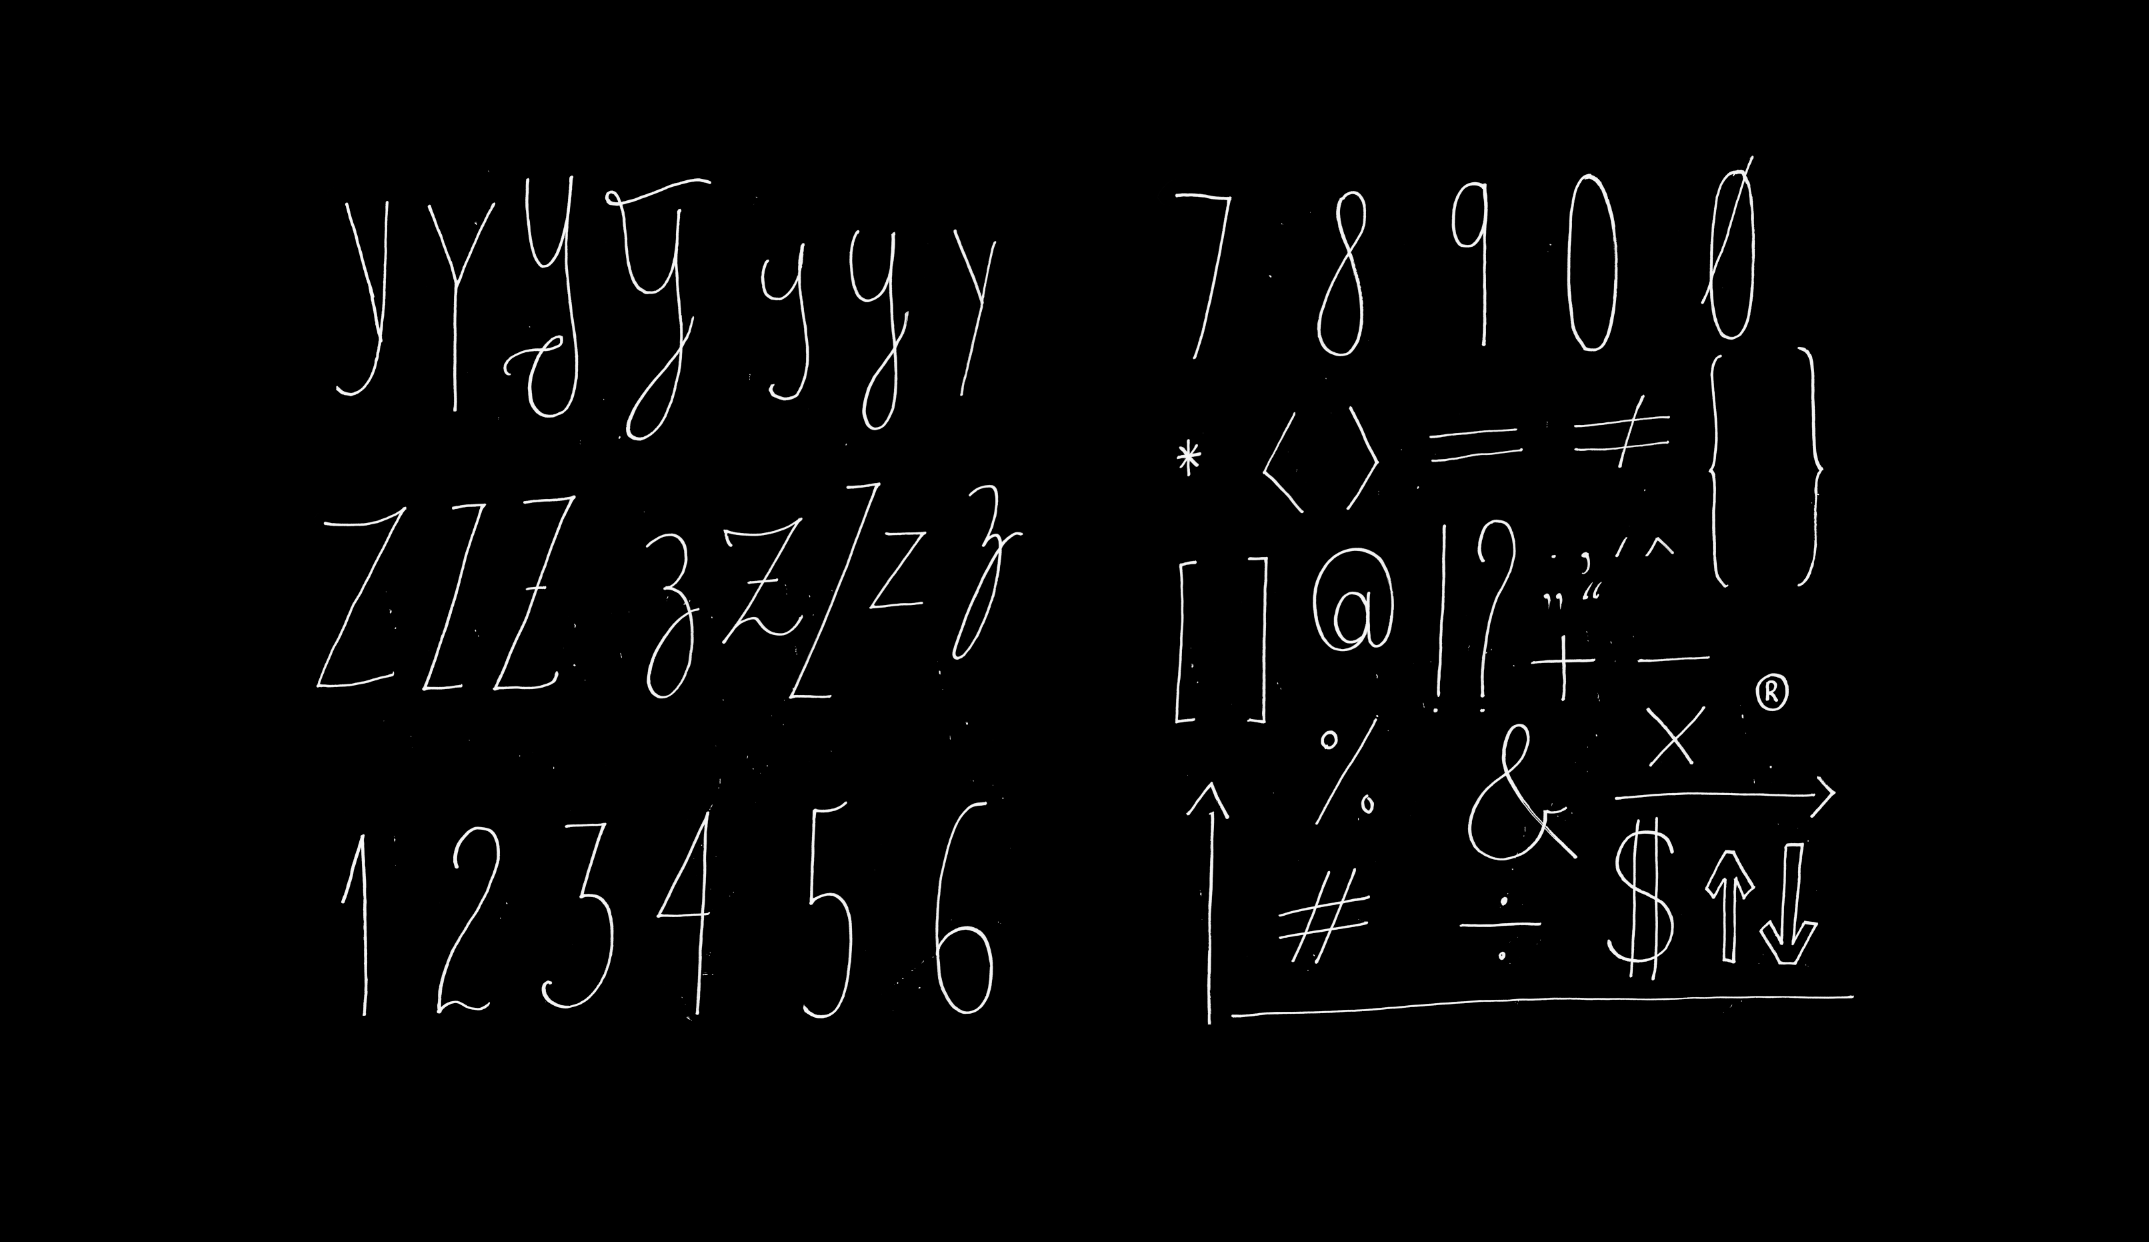 y Y y y y y y
Z Z Z z z Z z z
1 2 3 4 5 6
7 8 9 0 0
* < > = ≠ { }
[ ] @ ! ? . , ′ ^
„ “
+ − ®
% & ×
↑ →
# ÷ $ ⇧ ⇩